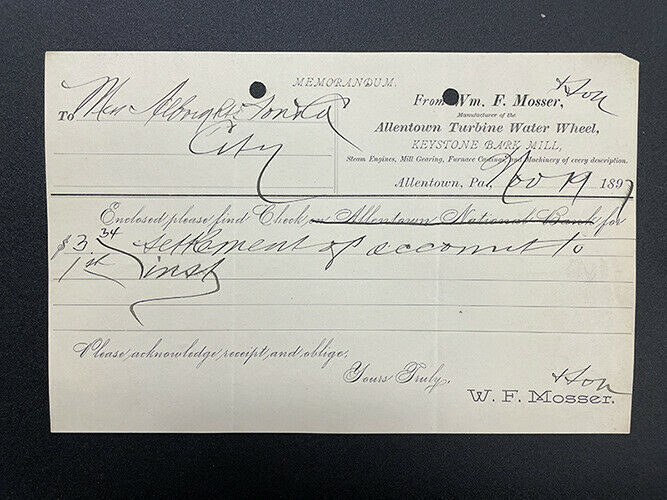 MEMORANDUM.
& Son
From Wm. F. Mosser,
To Mess Albright Son & Co
Manufacturer of the
Allentown Turbine Water Wheel,
City
KEYSTONE BARK MILL,
Steam Engines, Mill Gearing, Furnace Castings and Machinery of every description.
Allentown, Pa., Nov 19 1897
Enclosed please find Check on Allentown National Bank for
$3.34 settlement of account to
1st inst
Please acknowledge receipt and oblige,
Yours Truly,
& Son
W. F. Mosser.